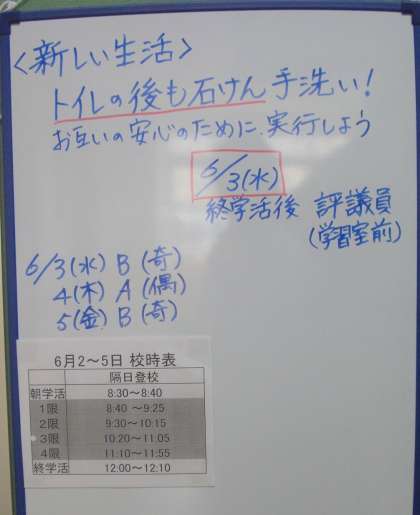 〈新しい生活〉
トイレの後も石けん手洗い！
お互いの安心のために、実行しよう
6/3(水)
終学活後 評議員
(学習室前)
6/3(水) B (奇)
4(木) A (偶)
5(金) B (奇)
6月2～5日 校時表
隔日登校
朝学活 8:30～8:40
1限 8:40 ～9:25
2限 9:30～10:15
3限 10:20～11:05
4限 11:10～11:55
終学活 12:00～12:10